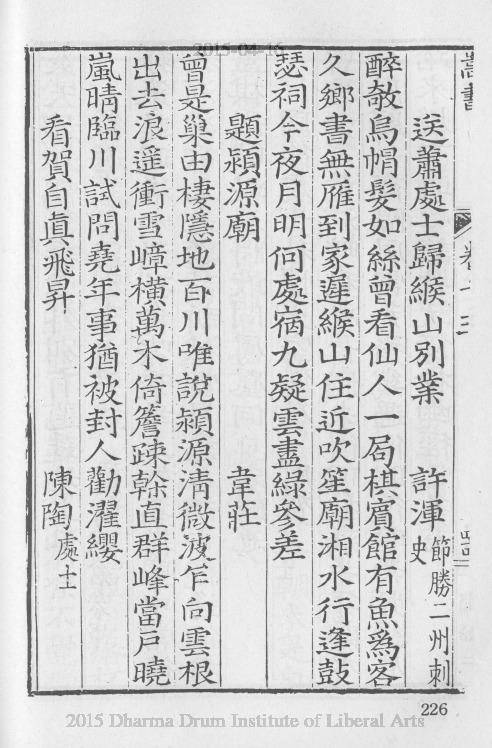 2015-04-16
嵩書
卷十三
送蕭處士歸緱山別業 許渾 節勝二州刺史
醉欹烏帽髮如絲曾看仙人一局棋賓館有魚爲客
久鄉書無雁到家遲緱山住近吹笙廟湘水行逢鼓
瑟祠今夜月明何處宿九疑雲盡綠參差
題潁源廟 韋莊
曾是巢由棲隱地百川唯說潁源淸微波乍向雲根
出去浪遥衝雪嶂橫萬木倚簷疎榦直群峰當戶曉
嵐晴臨川試問堯年事猶被封人勸濯纓
看賀自眞飛昇 陳陶 處士
226
2015 Dharma Drum Institute of Liberal Arts